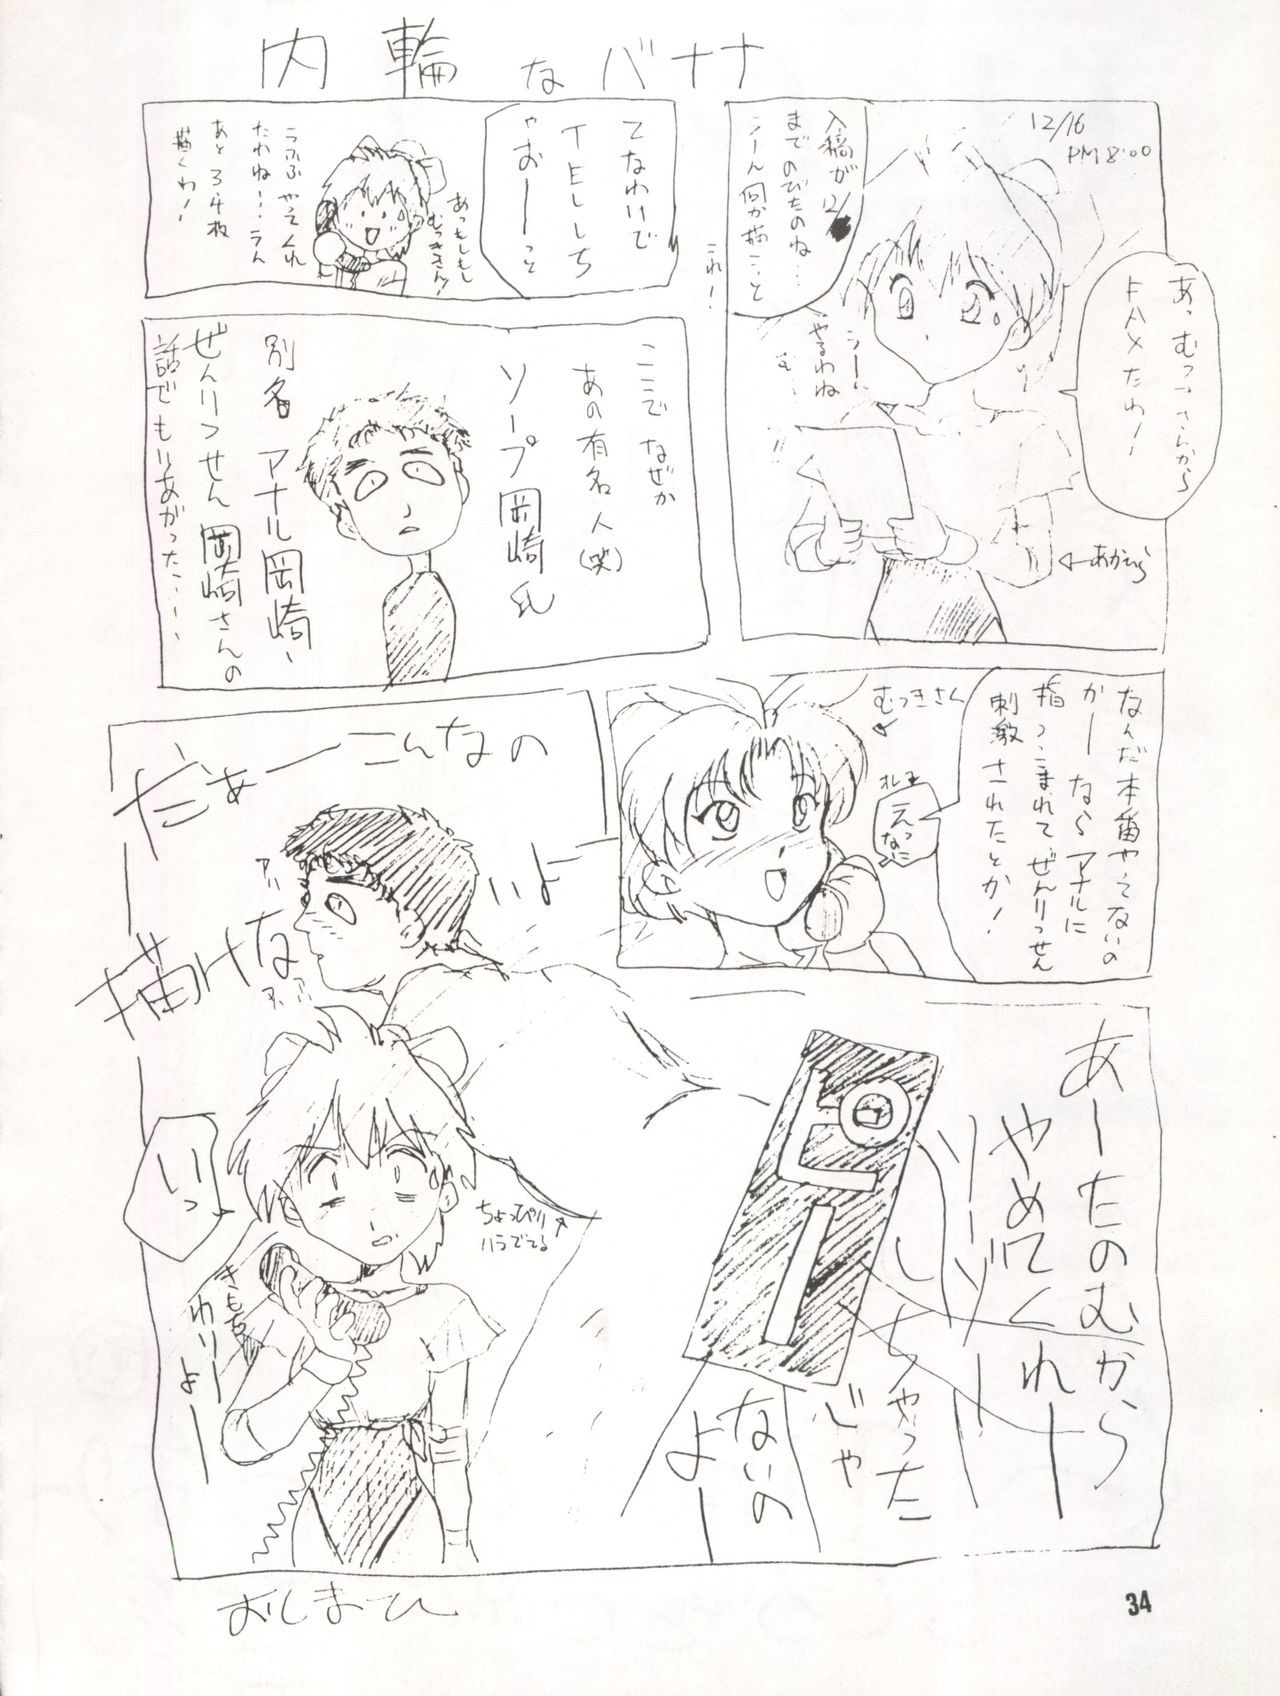 内輪なバナナ
12/16
PM 8:00
あっむつきさんから
FAXだわ!
入稿が12/
までのびたのね…
うーん何か描こっと
うー…
やるわね
む…
これ!
←あかほら
てなわけで
TELしち
ゃおーっと
あっもしもし
むつきさん!
うふふやってくれ
たわね…うん
あと3、4枚
描くわ!
ここでなぜか
あの有名人(笑)
ソープ岡崎氏
別名アナル岡崎、
ぜんりつせん岡崎さんの
話でもりあがった……
なんだ本番やってないの
かーならアナルに
指つっこまれてぜんりつせん
刺激されたとか!
むつきさく
えっ
なに
だぁーこんなの
いよー
描けな
アハ
アハ
アハ
いっ
きもち
わりー
よー
ちょっぴり
ハラでてる
ピー
あーたのむから
やめてくれー
しちゃった
じゃ
ないの
よー
おしまひ
34